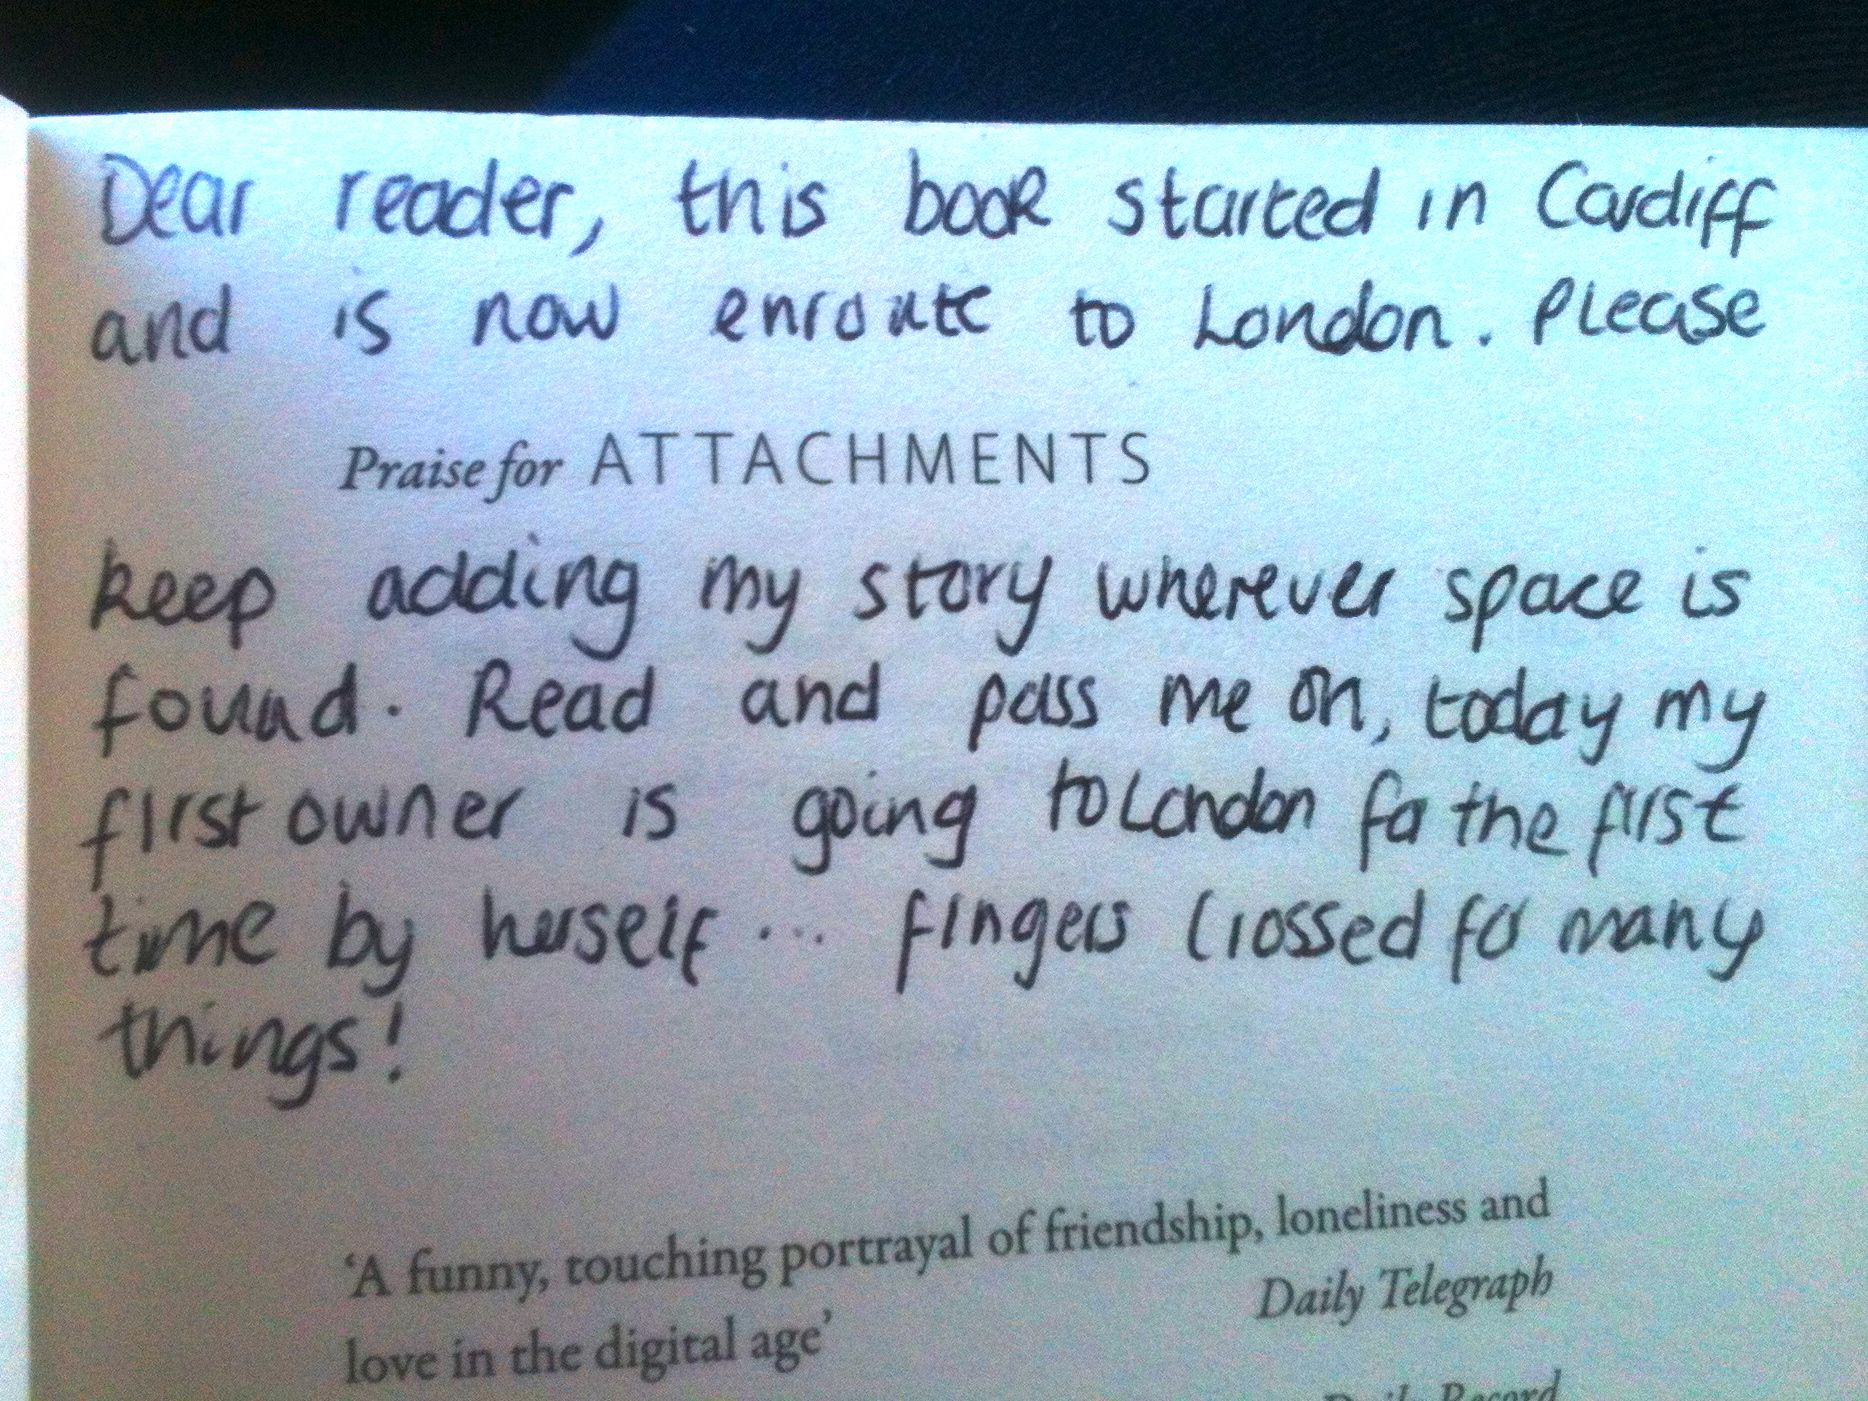 Dear reader, this book started in Cardiff
and is now enroute to London. Please
Praise for ATTACHMENTS
keep adding my story wherever space is
found. Read and pass me on, today my
first owner is going to London for the first
time by herself... fingers crossed for many
things!
'A funny, touching portrayal of friendship, loneliness and
love in the digital age'
Daily Telegraph
Daily Record